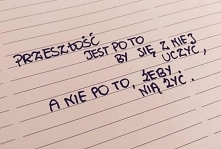 PRZESZŁOŚĆ
JEST PO TO
BY SIĘ Z NIEJ
UCZYĆ,
A NIE PO TO, ŻEBY
NIĄ ŻYĆ.